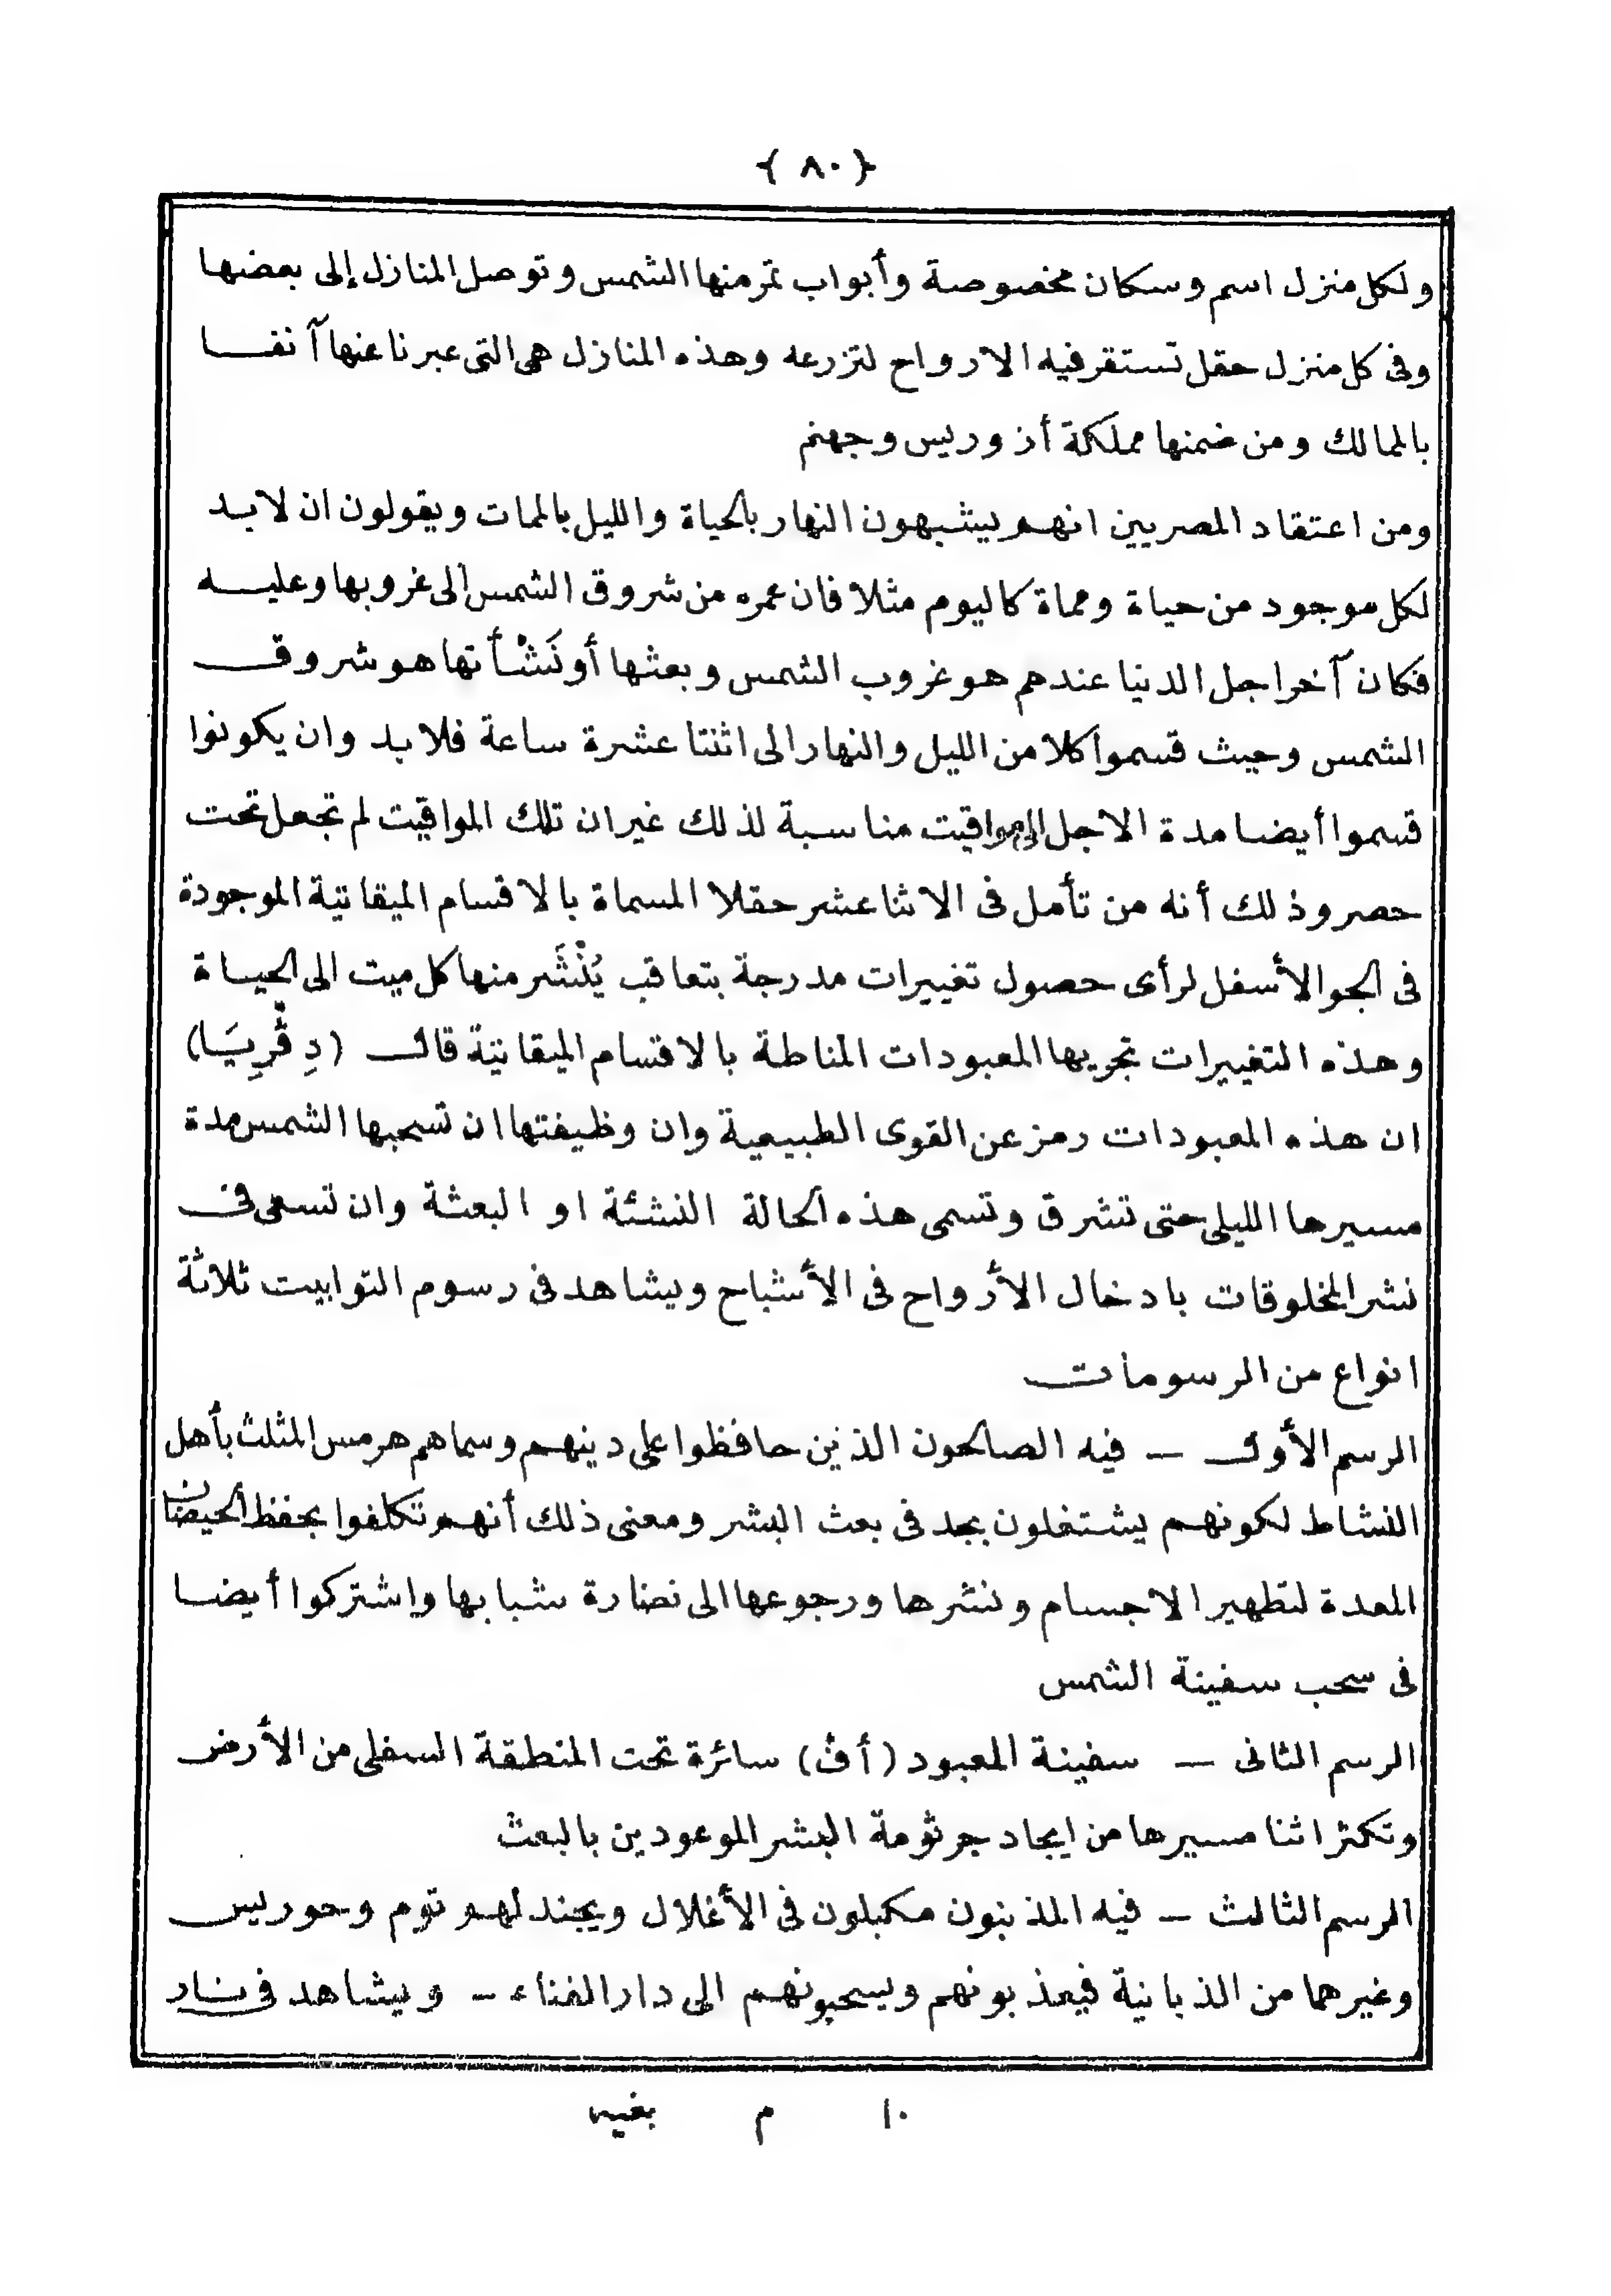 { ٨٠ }
ولكل منزل اسم وسكان مخصوصة وأبواب تمر منها الشمس وتوصل المنازل إلى بعضها
وفى كل منزل حقل تستقر فيه الارواح لتزرعه وهذه المنازل هى التى عبرنا عنها آنفا
بالممالك ومن ضمنها مملكة أزوريس وجهنم
ومن اعتقاد المصريين انهم يشبهون النهار بالحياة والليل بالممات ويقولون ان لابد
لكل موجود من حياة ومماة كاليوم مثلا فان عمره من شروق الشمس الى غروبها وعليه
فكان آخر اجل الدنيا عندهم هو غروب الشمس وبعثها أو نَشْأتها هو شروق
الشمس وحيث قسموا كلا من الليل والنهار الى اثنتا عشرة ساعة فلا بد وان يكونوا
قسموا أيضا مدة الاجل الى مواقيت مناسبة لذلك غير ان تلك المواقيت لم تجعل تحت
حصر وذلك أنه من تأمل فى الاثنا عشر حقلا المسماة بالاقسام الميقاتية الموجودة
فى الجو الأسفل لرأى حصول تغييرات مدرجة بتعاقب يُنْشَر منها كل ميت الى الحياة
وهذه التغييرات تجريها المعبودات المناطة بالاقسام الميقاتية قال (دِ ڤْرِيَا)
ان هذه المعبودات رمز عن القوى الطبيعية وان وظيفتها ان تسحبها الشمس مدة
مسيرها الليلى حتى تشرق وتسمى هذه الحالة النشئة او البعثة وان تسعى فى
نشر المخلوقات بادخال الأرواح فى الأشباح ويشاهد فى رسوم التوابيت ثلاثة
انواع من الرسومات
الرسم الأول — فيه الصالحون الذين حافظوا على دينهم وسماهم هرمس المثلث بأهل
النشاط لكونهم يشتغلون بجد فى بعث البشر ومعنى ذلك أنهم تكلفوا بحفظ الحيضان
المعدة لتطهير الاجسام ونشرها ورجوعها الى نضارة شبابها واشتركوا أيضا
فى سحب سفينة الشمس
الرسم الثانى — سفينة المعبود (أف) سائرة تحت المنطقة السفلى من الأرض
وتكثر اثنا مسيرها من ايجاد جرثومة البشر الموعودين بالبعث
الرسم الثالث — فيه المذنبون مكبلون فى الأغلال ويجند لهم توم وحوريس
وغيرهما من الذبانية فيعذبونهم ويسحبونهم الى دار الفناء — ويشاهد فى نار
١٠ م بغيه